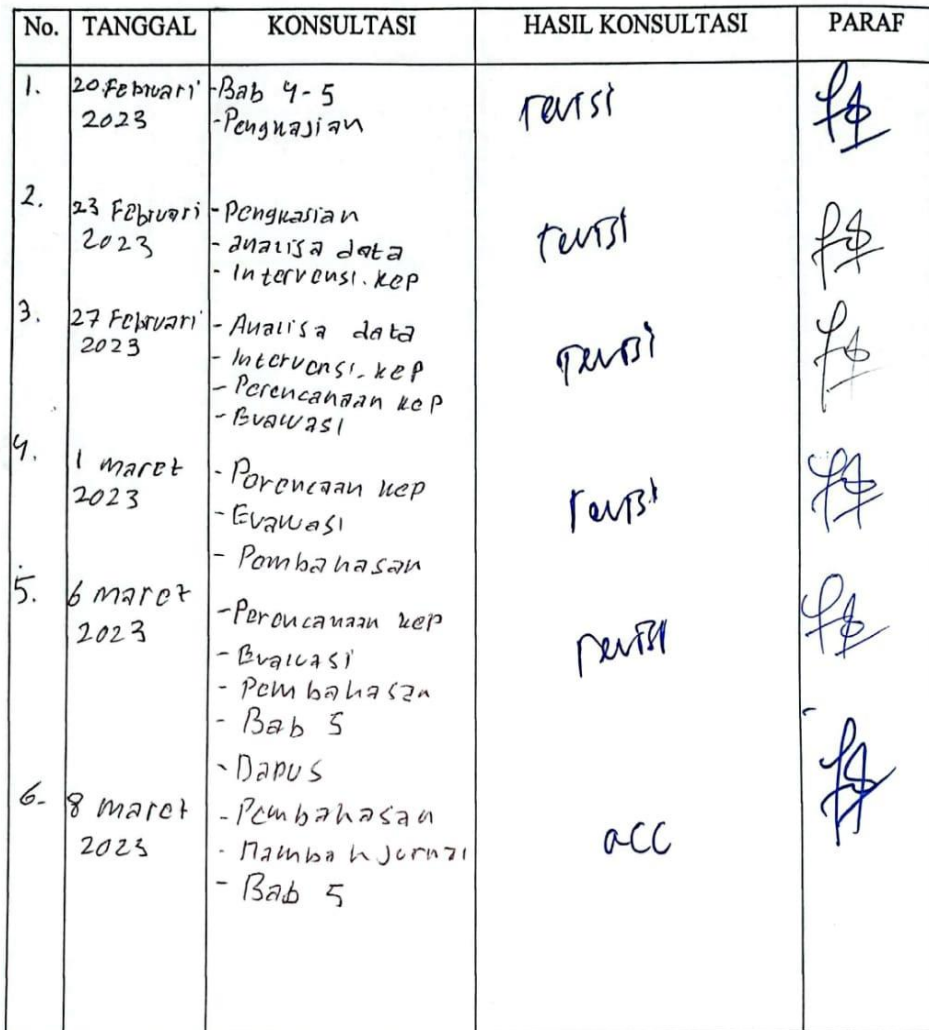 No. TANGGAL KONSULTASI HASIL KONSULTASI PARAF
1. 20 Februari 2023 -Bab 4-5 revisi
-Pengkajian
2. 23 Februari 2023 -Pengkasian revisi
- analisa data
- Intervensi. kep
3. 27 Februari 2023 - Analisa data revisi
- Intervensi. kep
- Perencanaan kep
- Evaluasi
4. 1 maret 2023 - Perencaan kep revisi
- Evaluasi
- Pembahasan
5. 6 maret 2023 - Perencanaan kep revisi
- Evaluasi
- Pembahasan
- Bab 5
- Dapus
6. 8 maret 2023 - Pembahasan acc
- Nambah Jurnal
- Bab 5